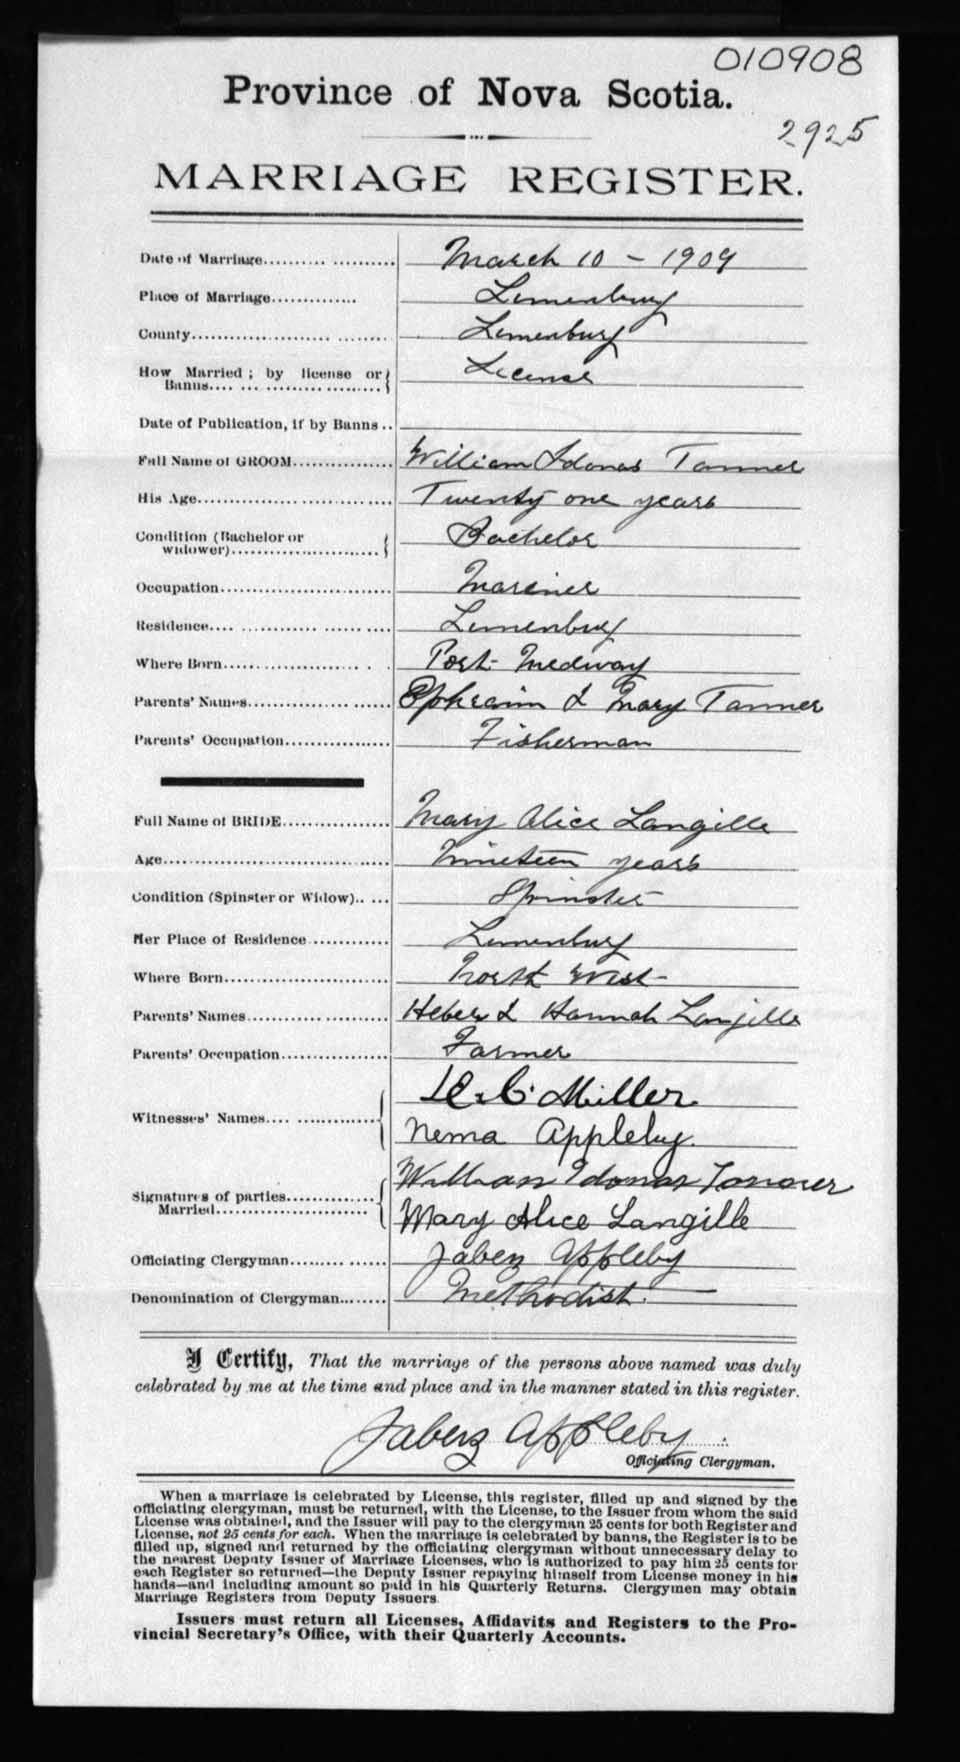 010908
Province of Nova Scotia.
2925
MARRIAGE REGISTER.
Date of Marriage March 10 - 1909
Place of Marriage Lunenburg
County Lunenburg
How Married; by license or Banns License
Date of Publication, if by Banns
Full Name of GROOM William Idonas Tanner
His Age Twenty one years
Condition (Bachelor or widower) Bachelor
Occupation Mariner
Residence Lunenburg
Where Born Port Medway
Parents' Names Ephraim & Mary Tanner
Parents' Occupation Fisherman
Full Name of BRIDE Mary Alice Langille
Age Nineteen years
Condition (Spinster or Widow) Spinster
Her Place of Residence Lunenburg
Where Born North West
Parents' Names Heber & Hannah Langille
Parents' Occupation Farmer
Witnesses' Names C. Miller
Nema Appleby.
Signatures of parties Married William Idonas Tanner
Mary Alice Langille
Officiating Clergyman Jabez Appleby
Denomination of Clergyman Methodist.
I Certify, That the marriage of the persons above named was duly
celebrated by me at the time and place and in the manner stated in this register.
Jabez Appleby
Officiating Clergyman.
When a marriage is celebrated by License, this register, filled up and signed by the
officiating clergyman, must be returned, with the License, to the Issuer from whom the said
License was obtained, and the Issuer will pay to the clergyman 25 cents for both Register and
License, not 25 cents for each. When the marriage is celebrated by banns, the Register is to be
filled up, signed and returned by the officiating clergyman without unnecessary delay to
the nearest Deputy Issuer of Marriage Licenses, who is authorized to pay him 25 cents for
each Register so returned—the Deputy Issuer repaying himself from License money in his
hands—and including amount so paid in his Quarterly Returns. Clergymen may obtain
Marriage Registers from Deputy Issuers
Issuers must return all Licenses, Affidavits and Registers to the Pro-
vincial Secretary's Office, with their Quarterly Accounts.